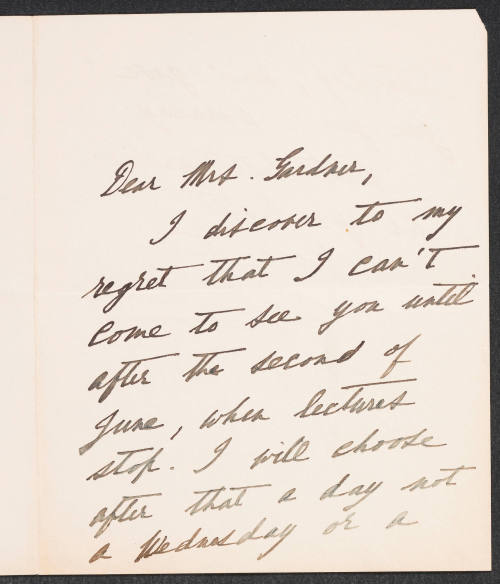 Dear Mrs. Gardner,
I discover to my
regret that I can't
come to see you until
after the second of
June, when lectures
stop. I will choose
after that a day not
a Wednesday or a